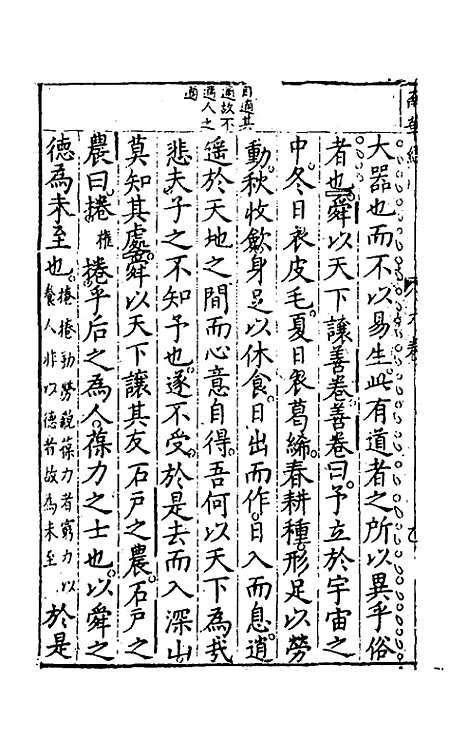 南華經
大器也而不以易生此有道者之所以異乎俗
者也舜以天下讓善卷善卷曰予立於宇宙之
中冬日衣皮毛夏日衣葛絺春耕種形足以勞
動秋收斂身足以休食日出而作日入而息逍
遙於天地之間而心意自得吾何以天下為哉
悲夫子之不知予也遂不受於是去而入深山
莫知其處舜以天下讓其友石戶之農石戶之
農曰捲權捲乎后之為人葆力之士也以舜之
德為未至也捲捲勤勞貌葆力者窮力以
養人非以德者故為未至於是
自適其
適故不
適人之
適